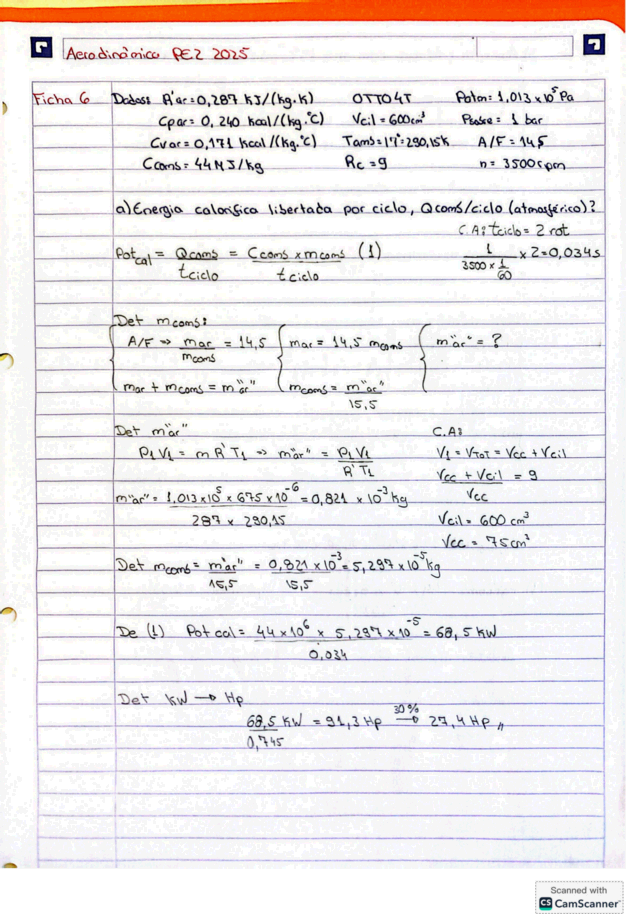 Aerodinâmica PE2 2025
Ficha 6 Dados: R'ar = 0,287 KJ/(kg.K) OTTO 4T Patm = 1,013 x 10⁵ Pa
Cpar = 0,240 Kcal/(kg.°C) Vcil = 600cm³ = 1 bar
Cvar = 0,171 Kcal/(kg.°C) Tamb = 17° = 290,15K A/F = 14,5
Ccomb = 44MJ/kg Rc = 9 n = 3500rpm
a) Energia calorífica libertada por ciclo, Qcomb/ciclo (atmosférico)?
C.A: tciclo = 2 rot
Potcal = Qcomb/tciclo = Ccomb x mcomb/tciclo (1) 1/(3500 x 1/60) x 2 = 0,034s
Det mcomb:
A/F => mar/mcomb = 14,5 { mar = 14,5 mcomb { m"ar" = ?
mar + mcomb = m"ar" { mcomb = m"ar"/15,5
Det m"ar" C.A:
P1 V1 = m R' T1 => m"ar" = P1 V1/R' T1 V1 = VTOT = Vcc + Vcil
Vcc + Vcil/Vcc = 9
m"ar" = 1,013 x 10⁵ x 675 x 10⁻⁶/287 x 290,15 = 0,821 x 10⁻³ kg
Vcil = 600 cm³
Vcc = 75cm³
Det mcomb = m"ar"/15,5 = 0,821 x 10⁻³/15,5 = 5,297 x 10⁻⁵ kg
De (1) Pot cal = 44 x 10⁶ x 5,297 x 10⁻⁵/0,034 = 68,5 kW
Det kW → Hp
68,5 kW/0,745 = 91,3 Hp 30% → 27,4 Hp,,
Scanned with
CS CamScanner